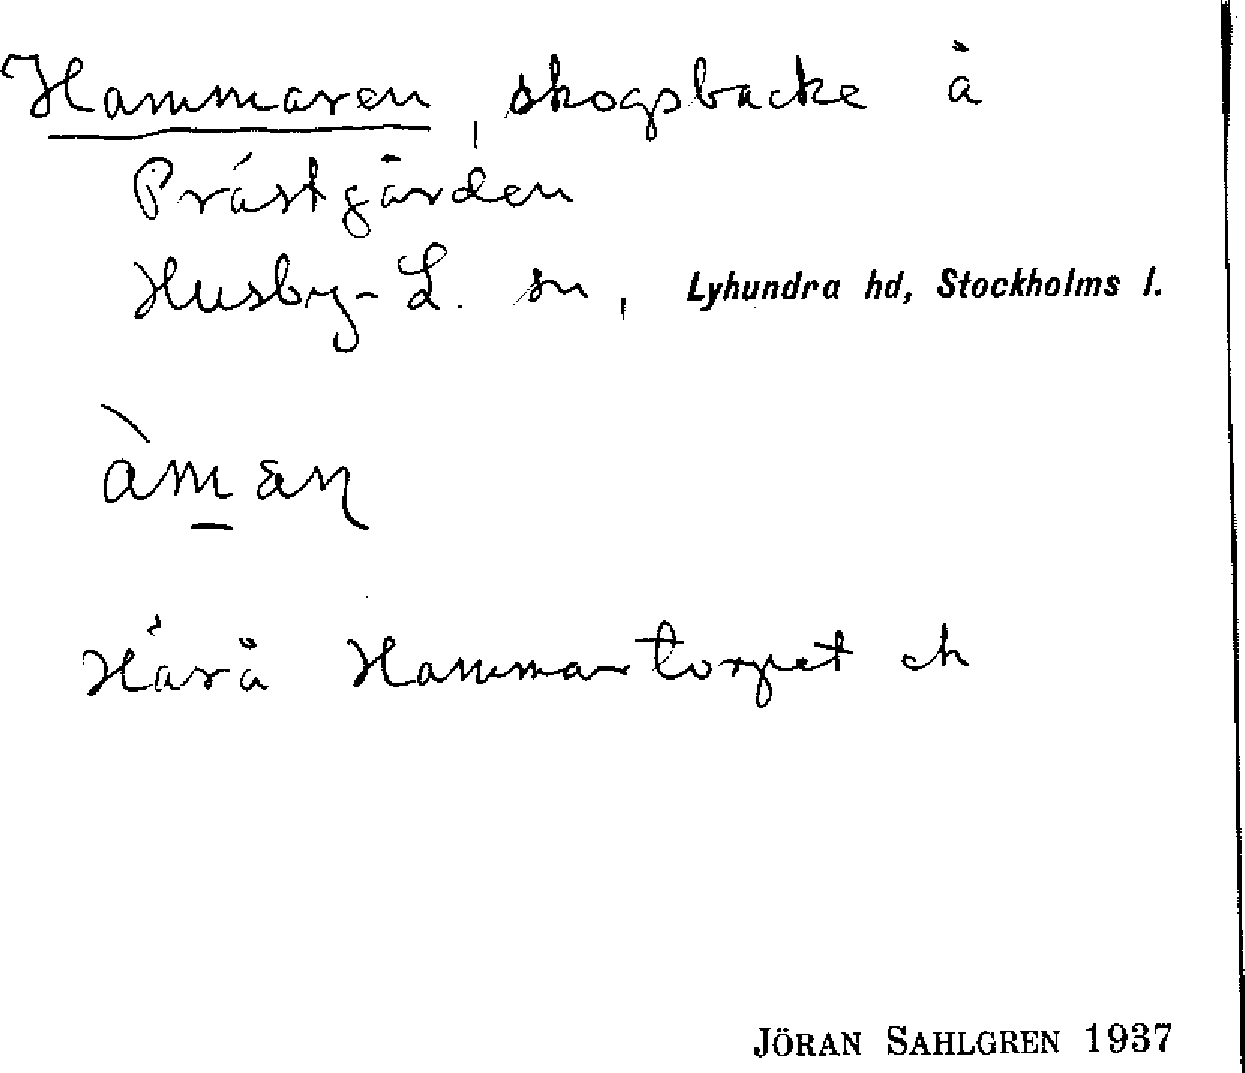 Hammaren, skogsbacke å
Prästgården
Husby-L. sn, Lyhundra hd, Stockholms l.
Härå Hammartorpet ch
JÖRAN SAHLGREN 1937